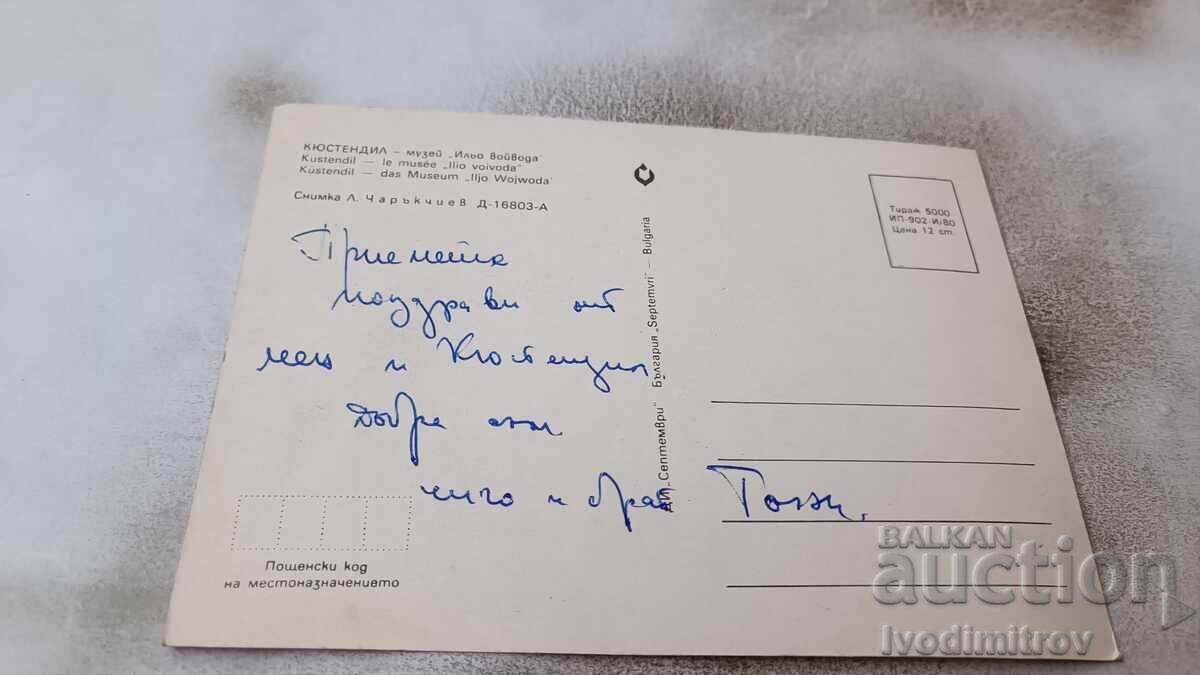 КЮСТЕНДИЛ – музей „Ильо войвода"
Kustendil — le musée „Ilio voivoda"
Kustendil — das Museum „Iljo Wojwoda"
Снимка Л. Чаръкчиев Д-16803-А
Приемете
поздрави от
мен и Кюстендил
Добре съм
чичо и брат
ДИ „Септември" България „Septemvri" – Bulgaria
Тираж 5000
ИП-902-И/80
Цена 12 ст.
Пощенски код
на местоназначението
BALKAN
auction
Ivodimitrov